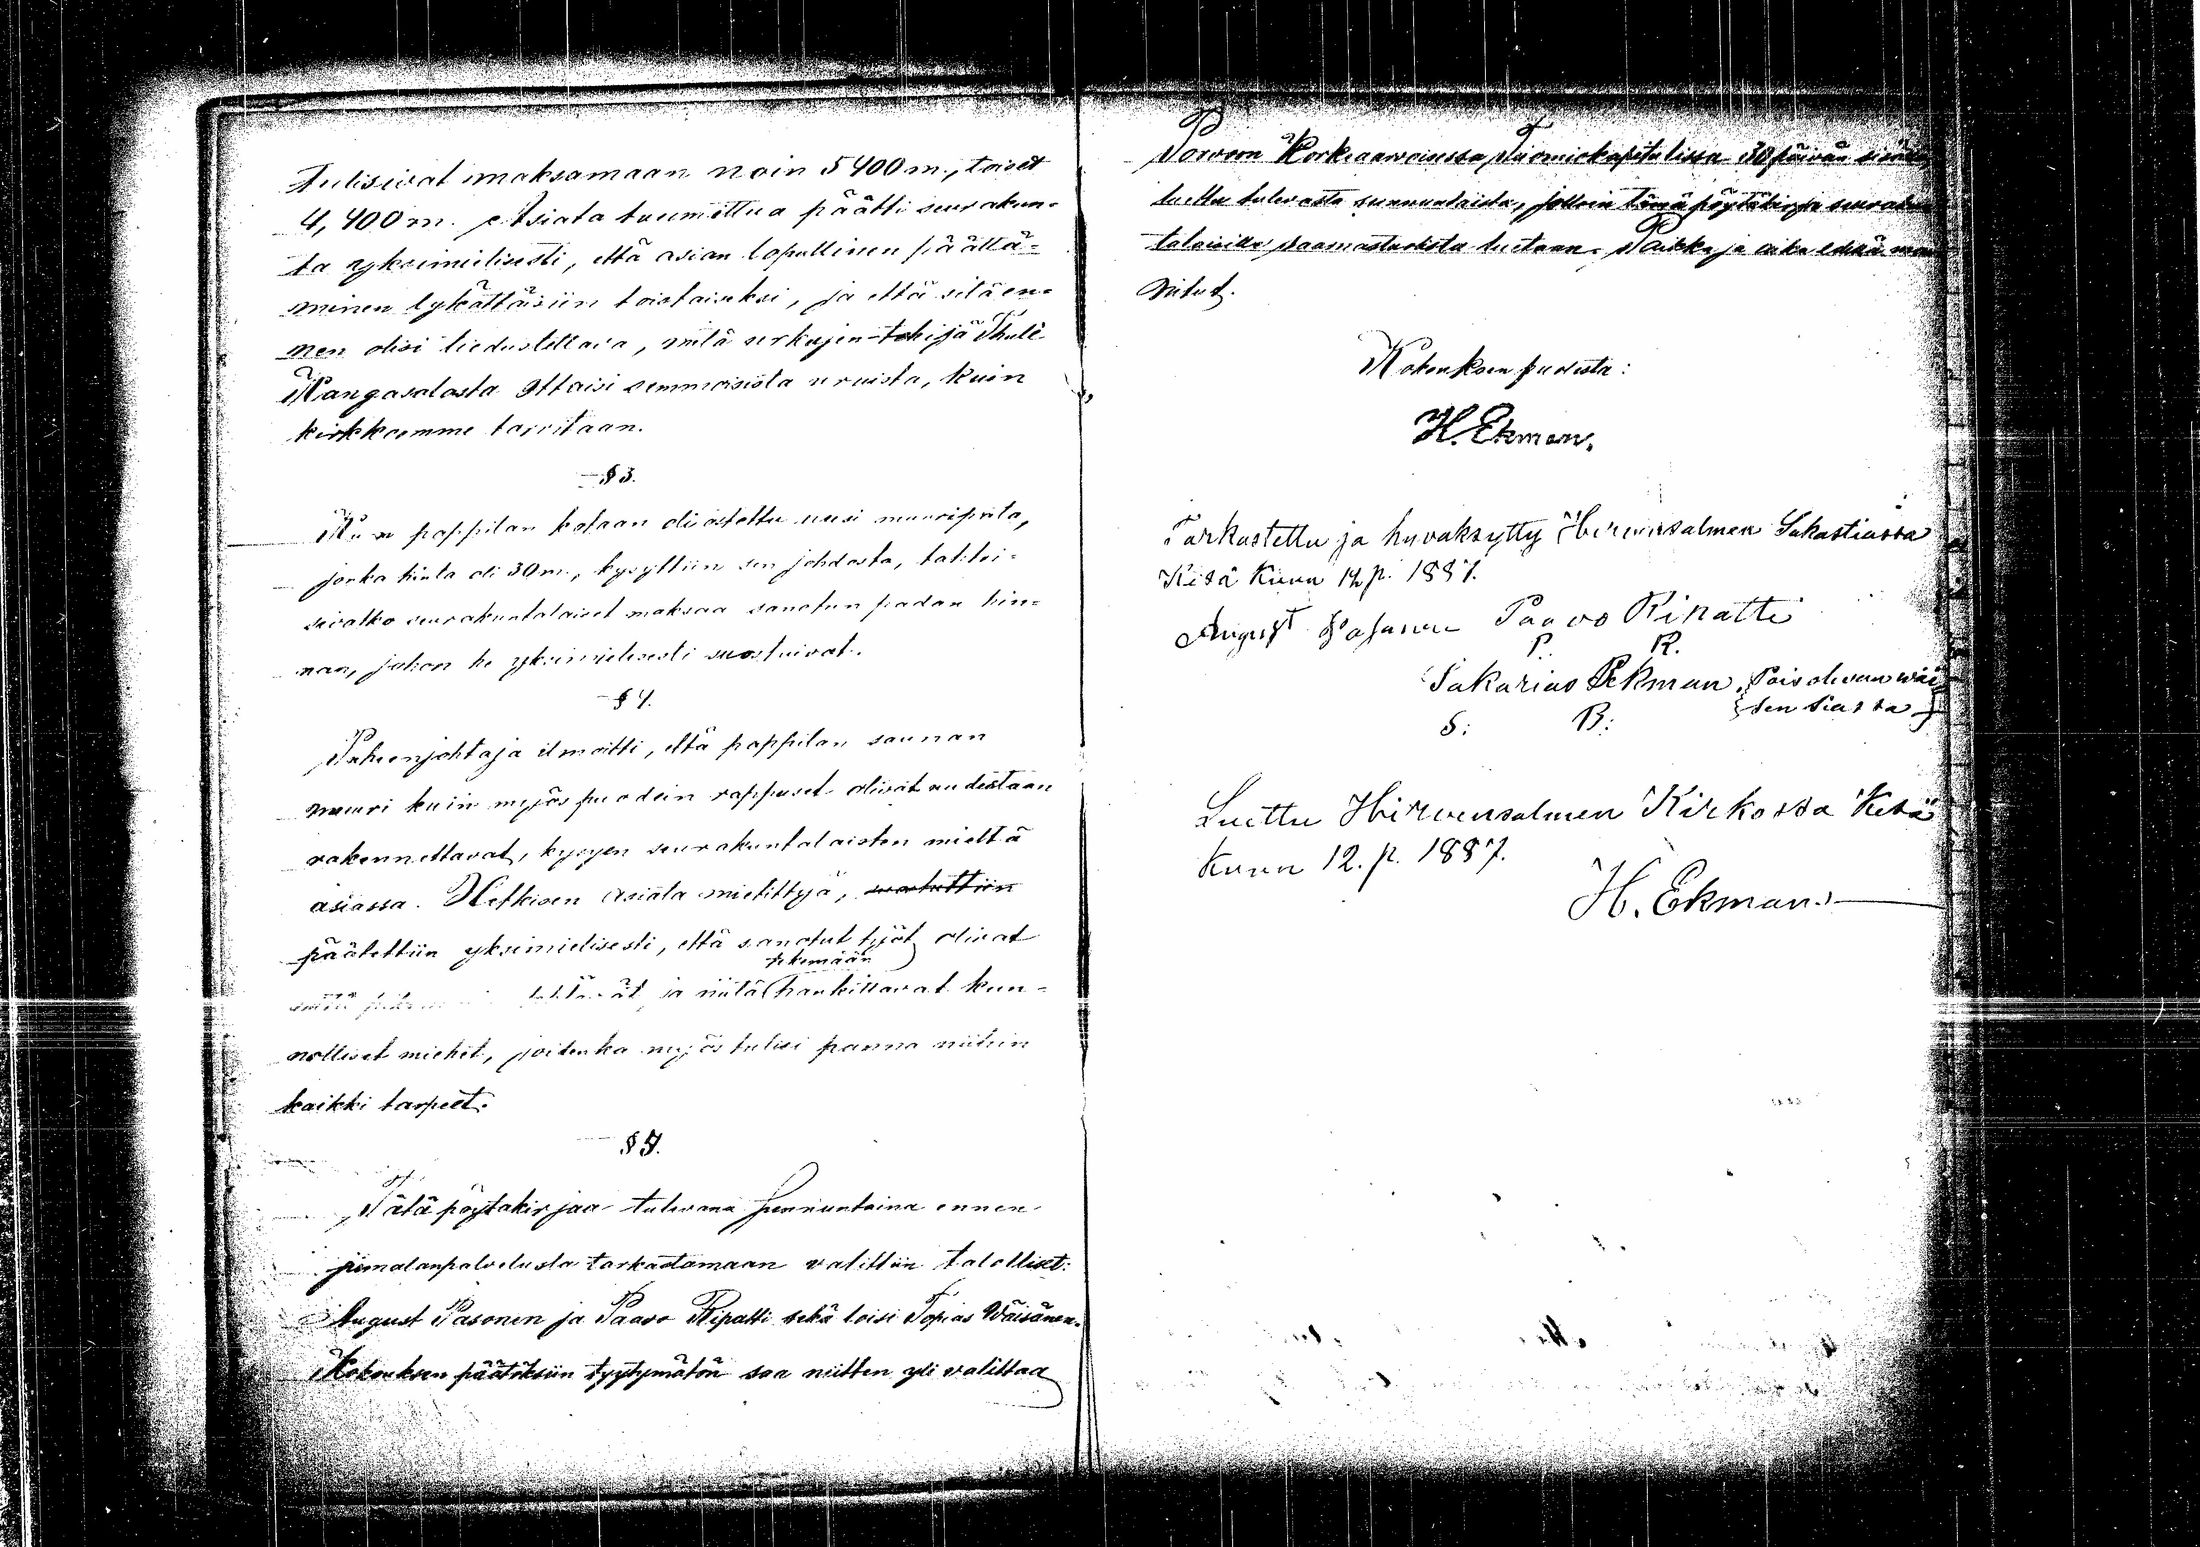 tulisivat maksamaan noin 5400 m., toiset
4,400 m. Asiata tuumittua päätti seurakun-
ta yksimielisesti, että asian lopullinen päättä-
minen lykättäisiin toistaiseksi, ja että sitä en-
nen olisi tiedusteltava, mitä urkujen-tekijä Thulé
Kangasalasta ottaisi semmoisista uruista, kuin
kirkkoomme tarvitaan.
§ 3.
Kun pappilan kotaan oli ostettu uusi muuripata,
jonka hinta oli 30 m., kysyttiin sen johdosta, tahtoi-
sivatko seurakuntalaiset maksaa sanotun padan hin-
nan, johon he yksimielisesti suostuivat.
§ 4.
Puheenjohtaja ilmoitti, että pappilan saunan
muuri kuin myös puodin rappuset olivat uudestaan
rakennettavat, kysyen seurakuntalaisten mieltä
asiassa. Hetkisen asiata mietittyä, suostuttiin
päätettiin yksimielisesti, että sanotut työt olivat
tekemään
tehtävät, ja niitä hankittavat kun-
nolliset miehet, joitenka myös tulisi panna niihin
kaikki tarpeet.
§ 5.
Tätä pöytäkirjaa tulevana sunnuntaina ennen
jumalanpalvelusta tarkastamaan valittiin talolliset:
August Pasonen ja Paavo Ripatti sekä loisi Topias Wäisänen.
Kokouksen päätöksiin tyytymätön saa niitten yli valittaa
Porvoon Korkeaarvoisessa Tuomiokapitulissa 30 päivän sisään
luettu tulevasta sunnuntaista, jolloin tämä pöytäkirja seurakun
talaisille saamastuolista luetaan. Paikka ja aika edellä mai
nitut.
Kokouksen puolesta:
H. Ekman.
Tarkastettu ja hyvaksytty Hirvensalmen Sakastiassa
Kesä Kuun 12 p. 1887.
August Pasonen Paavo Ripatti
P. R.
Sakarias Pekman, Pois olevan wäi
S: B: sen siassa
Luettu Hirvensalmen Kirkossa Kesä
Kuun 12. p. 1887.
H. Ekman.